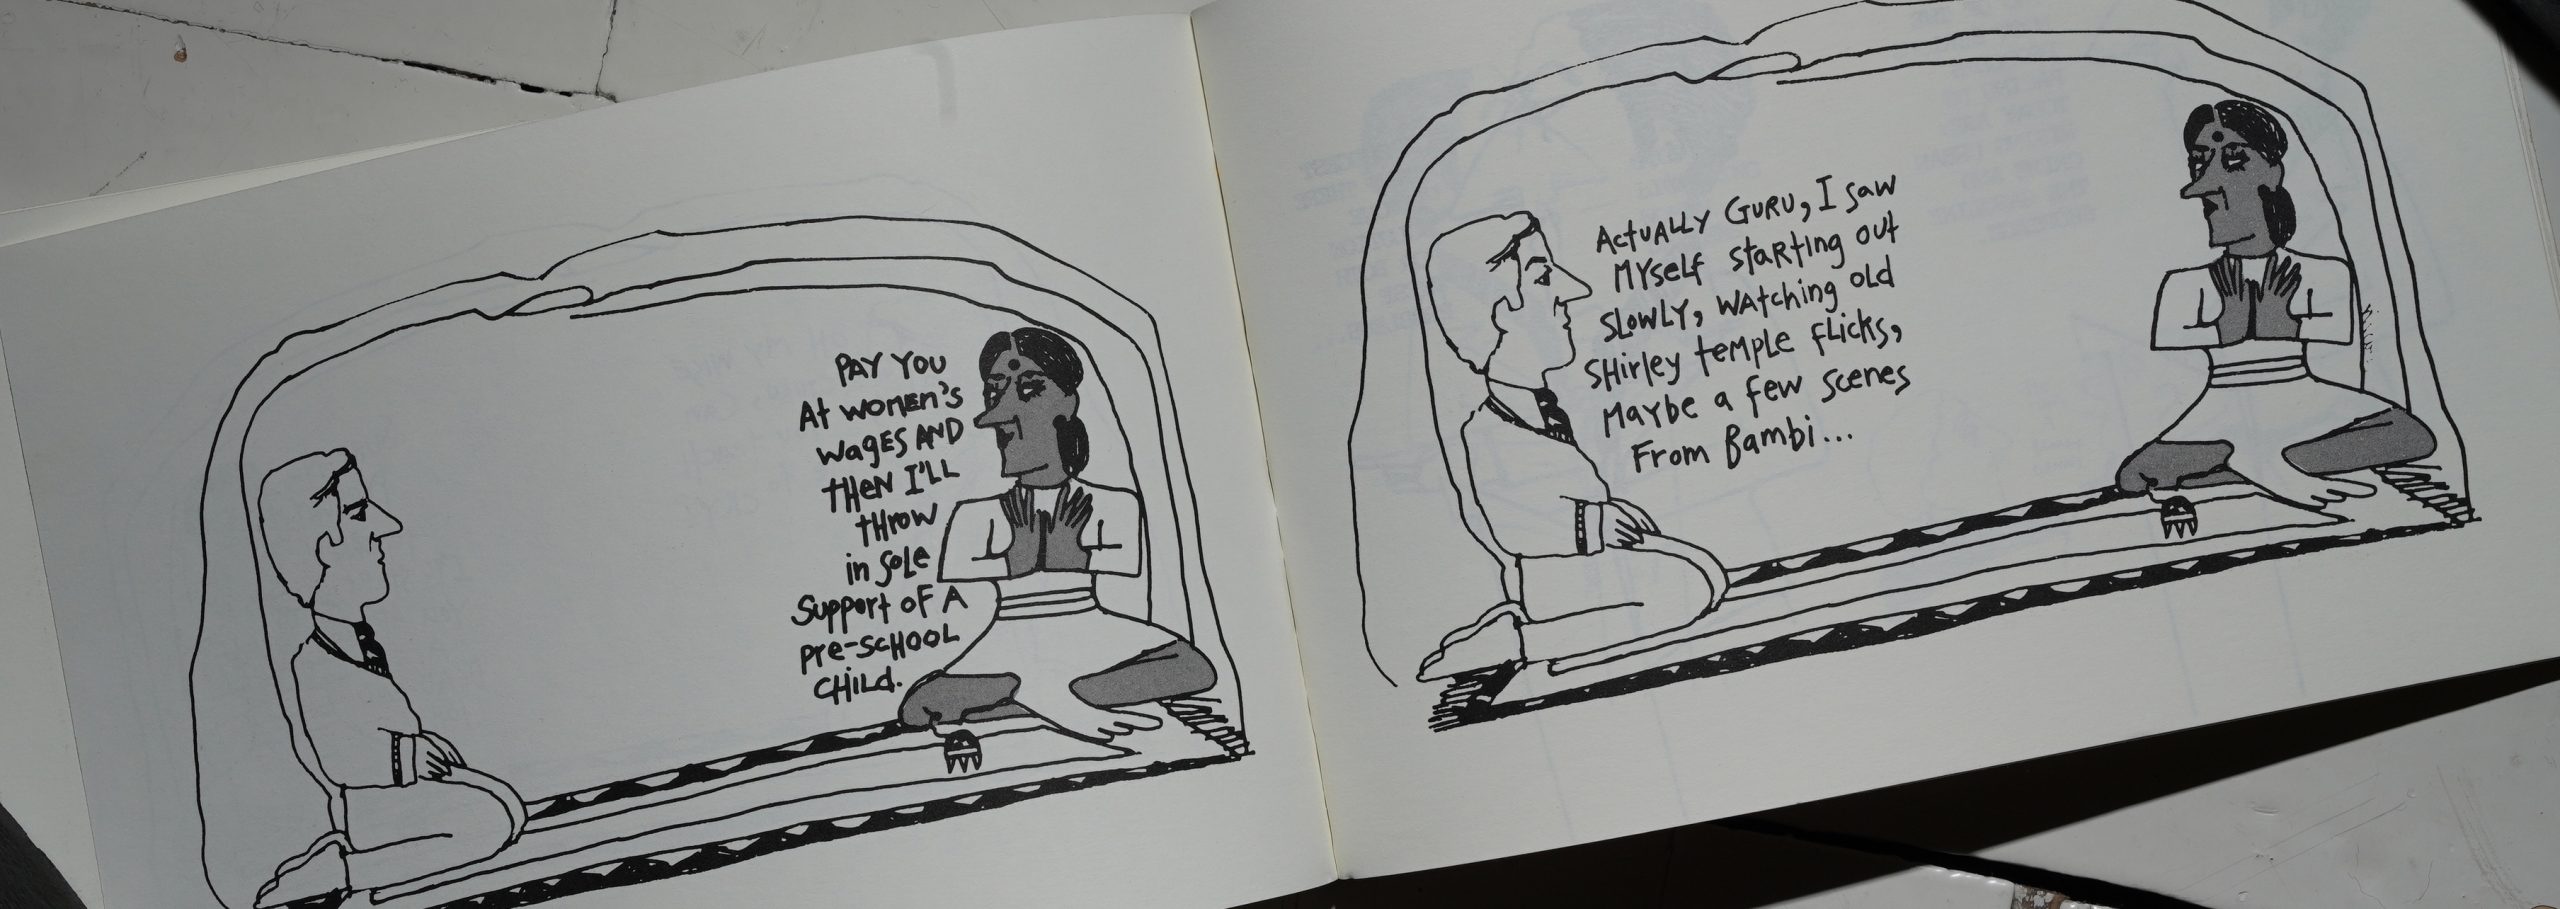 PAY YOU
At WOMEN'S
WAgES AND
tHeN I'LL
tHrow
in sole
Support oF A
pre-scHOOL
CHiLd.
ActUALLY GURU, I saw
MYselF startIng out
slowLy, WAtching old
SHirley temple flicks,
Maybe a few scenes
From Bambi...